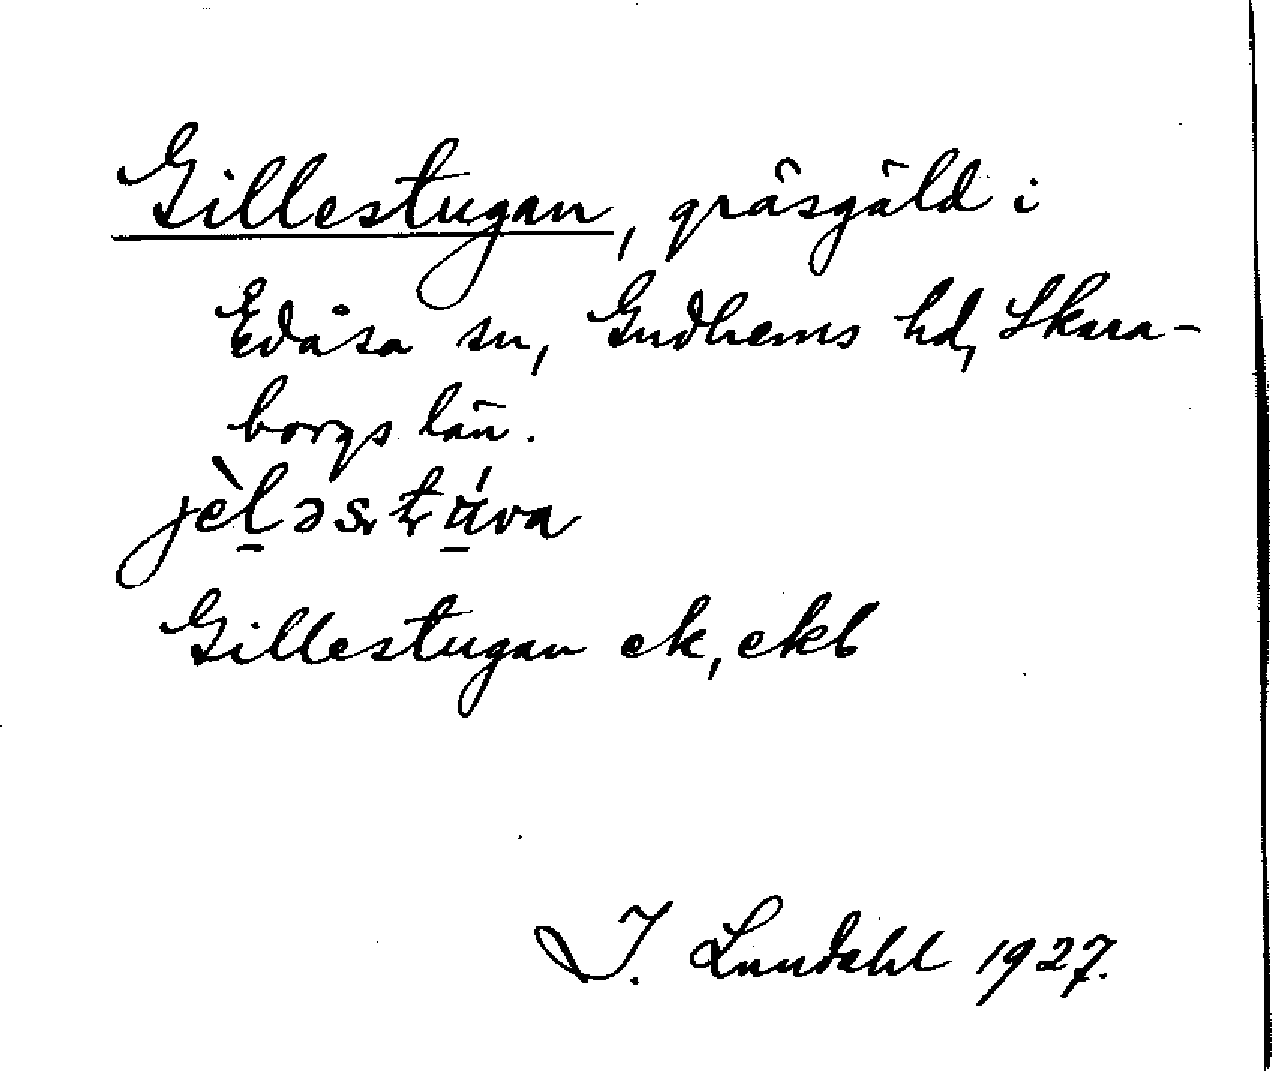 Gillestugan, gräsgäld i
Edåsa sn, Gudhems hd, Skara-
borgs län.
jèl̠əstú̠va
Gillestugan ek, ekb
I. Lundahl 1927.